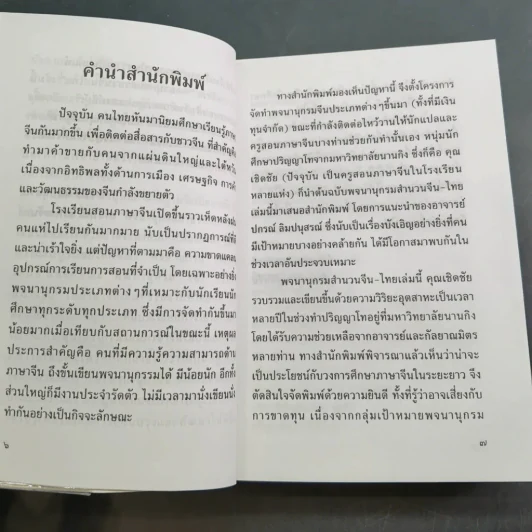 คำนำสำนักพิมพ์
ปัจจุบัน คนไทยหันมานิยมศึกษาเรียนรู้ภาษ
จีนกันมากขึ้น เพื่อติดต่อสื่อสารกับชาวจีน ที่สำคัญคื
ทำมาค้าขายกับคนจากแผ่นดินใหญ่และไต้หวั
เนื่องจากอิทธิพลทั้งด้านการเมือง เศรษฐกิจ การค้
และวัฒนธรรมของจีนกำลังขยายตัว
โรงเรียนสอนภาษาจีนเปิดขึ้นราวเห็ดหลังฝน
คนแห่ไปเรียนกันมากมาย นับเป็นปรากฏการณ์ที่ดี
และน่าเร้าใจยิ่ง แต่ปัญหาที่ตามมาคือ ความขาดแคลน
อุปกรณ์การเรียนการสอนที่จำเป็น โดยเฉพาะอย่างยิ่ง
พจนานุกรมประเภทต่างๆที่เหมาะกับนักเรียนนัก
ศึกษาทุกระดับทุกประเภท ซึ่งมีการจัดทำกันขึ้นมา
น้อยมากเมื่อเทียบกับสถานการณ์ในขณะนี้ เหตุผล
ประการสำคัญคือ คนที่มีความรู้ความสามารถด้าน
ภาษาจีน ถึงขั้นเขียนพจนานุกรมได้ มีน้อยนัก อีกทั้ง
ส่วนใหญ่ก็มีงานประจำรัดตัว ไม่มีเวลามานั่งเขียนนั่ง
ทำกันอย่างเป็นกิจจะลักษณะ
๖
ทางสำนักพิมพ์มองเห็นปัญหานี้ จึงตั้งโครงการ
จัดทำพจนานุกรมจีนประเภทต่างๆขึ้นมา (ทั้งที่มีเงิน
ทุนจำกัด) ขณะที่กำลังติดต่อไหว้วานให้นักแปลและ
ครูสอนภาษาจีนบางท่านช่วยกันทำนั้นเอง หนุ่มนัก
ศึกษาปริญญาโทจากมหาวิทยาลัยนานกิง ซึ่งก็คือ คุณ
เชิดชัย (ปัจจุบัน เป็นครูสอนภาษาจีนในโรงเรียน
หลายแห่ง) ก็นำต้นฉบับพจนานุกรมสำนวนจีน-ไทย
เล่มนี้มาเสนอสำนักพิมพ์ โดยการแนะนำของอาจารย์
ปกรณ์ ลิมปนุสรณ์ ซึ่งนับเป็นเรื่องบังเอิญอย่างยิ่งที่คน
มีเป้าหมายบางอย่างคล้ายกัน ได้มีโอกาสมาพบกันใน
ช่วงเวลาอันประจวบเหมาะ
พจนานุกรมสำนวนจีน-ไทยเล่มนี้ คุณเชิดชัย
รวบรวมและเขียนขึ้นด้วยความวิริยะอุตสาหะเป็นเวลา
หลายปีในช่วงทำปริญญาโทอยู่ที่มหาวิทยาลัยนานกิง
โดยได้รับความช่วยเหลือจากอาจารย์และกัลยาณมิตร
หลายท่าน ทางสำนักพิมพ์พิจารณาแล้วเห็นว่าน่าจะ
เป็นประโยชน์กับวงการศึกษาภาษาจีนในระยะยาว จึง
ตัดสินใจจัดพิมพ์ด้วยความยินดี ทั้งที่รู้ว่าอาจเสี่ยงกับ
การขาดทุน เนื่องจากกลุ่มเป้าหมายพจนานุกรม
๗